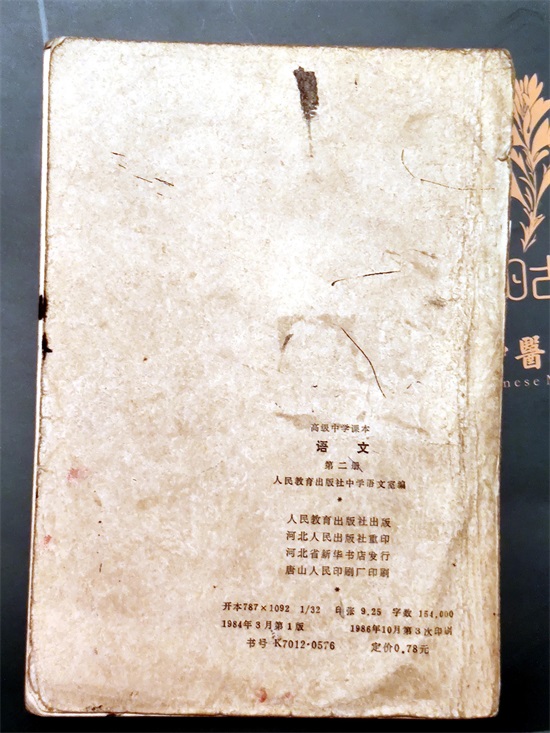 高级中学课本
语文
第二册
人民教育出版社中学语文室编
人民教育出版社出版
河北人民出版社重印
河北省新华书店发行
唐山人民印刷厂印刷
开本787×1092 1/32 印张 9.25 字数 154,000
1984年3月第1版 1986年10月第3次印刷
书号 K7012·0576 定价0.78元
醫
inese